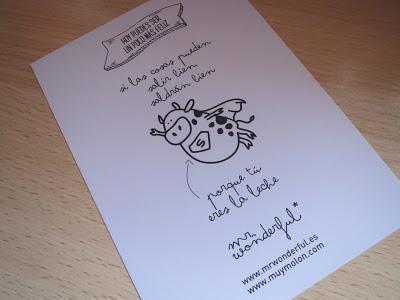 HOY PUEDES SER
UN POCO MÁS FELIZ
si las cosas pueden
salir bien,
saldrán bien
S
porque tú
eres la leche
mr.
wonderful*
www.mrwonderful.es
www.muymolon.com